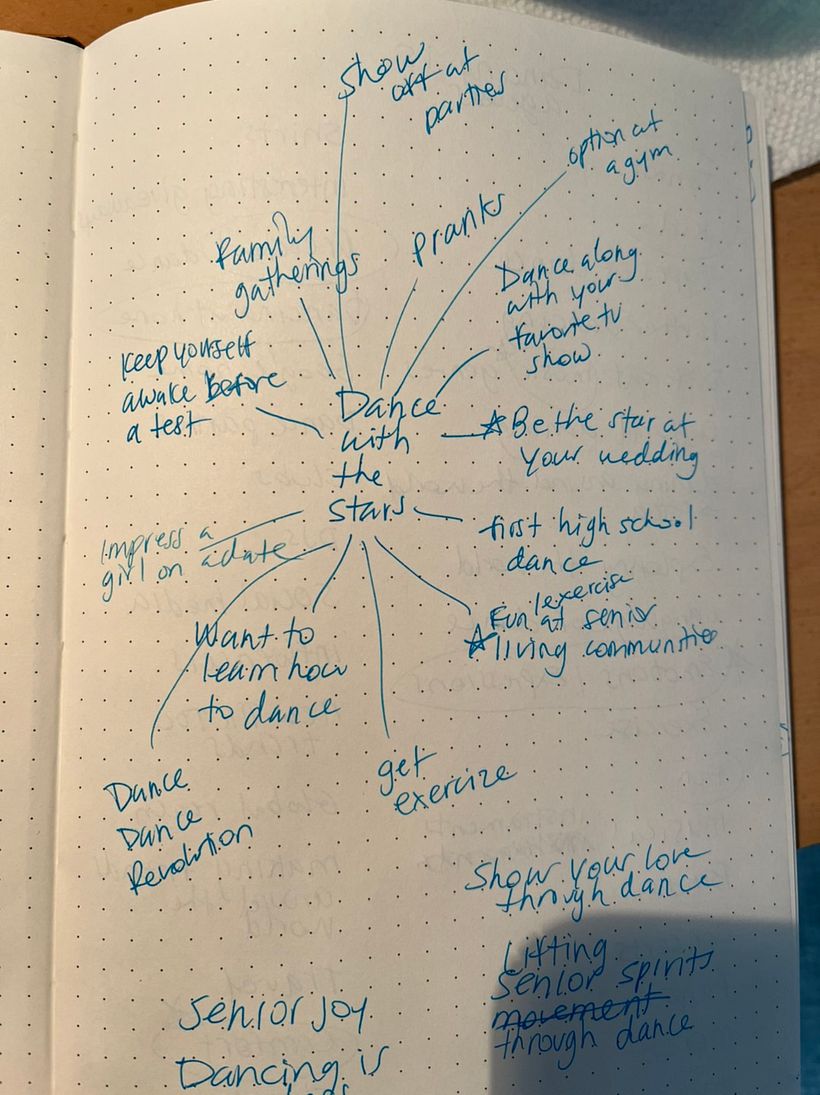 Show
off at
parties
option at
a gym
pranks
Family
gatherings
Dance along
with your
favorite tv
show
keep yourself
awake before
a test
Dance
with
the
stars
Be the star at
your wedding
first high school
dance
Impress a
girl on a date
Fun/exercise
at senior
living communities
Want to
learn how
to dance
get
exercize
Dance
Dance
Revolution
Show your love
through dance
Lifting
senior spirits
movement
through dance
Senior joy
Dancing is